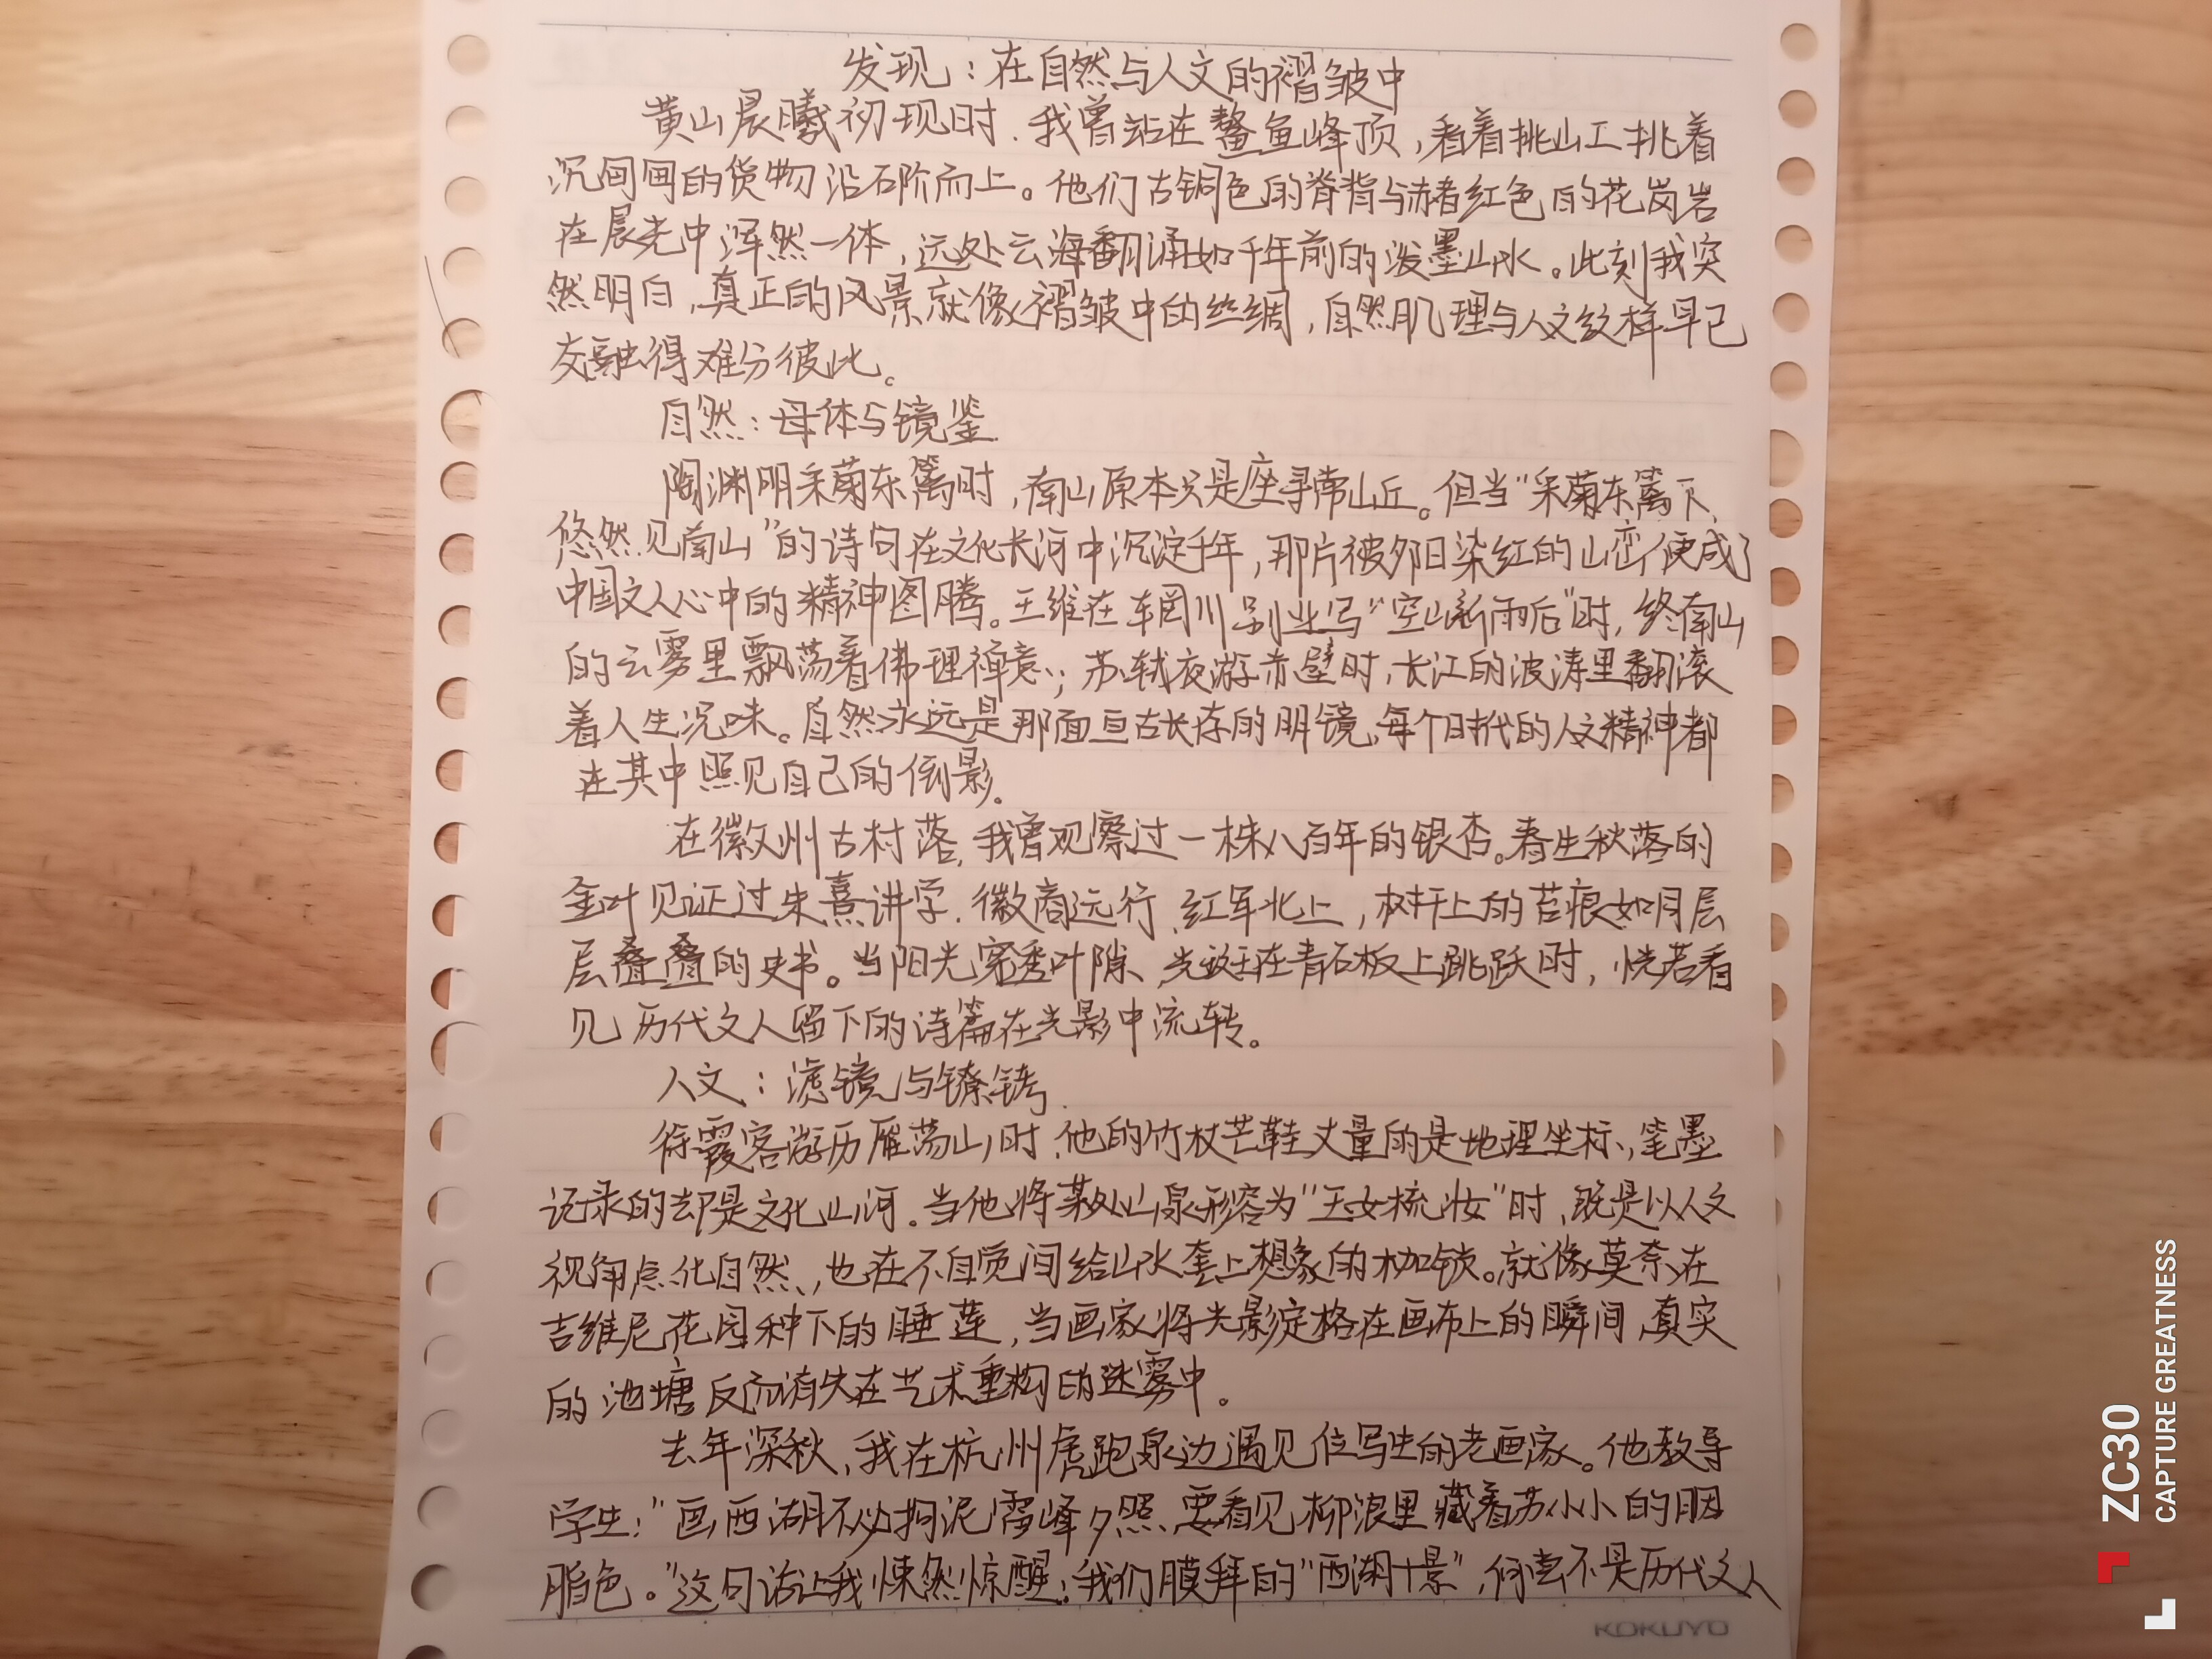 发现：在自然与人文的褶皱中
黄山晨曦初现时，我曾站在鳌鱼峰顶，看着挑山工挑着
沉甸甸的货物沿石阶而上。他们古铜色的脊背与赭红色的花岗岩
在晨光中浑然一体，远处云海翻涌如千年前的泼墨山水。此刻我突
然明白，真正的风景就像褶皱中的丝绸，自然肌理与人文纹样早已
交融得难分彼此。
自然：母体与镜鉴
陶渊明采菊东篱时，南山原本只是座寻常山丘。但当“采菊东篱下，
悠然见南山”的诗句在文化长河中沉淀千年，那片被夕阳染红的山峦便成了
中国文人心中的精神图腾。王维在辋川别业写“空山新雨后”时，终南山
的云雾里飘荡着佛理禅意；苏轼夜游赤壁时，长江的波涛里翻滚
着人生况味。自然永远是那面亘古长存的明镜，每个时代的人文精神都
在其中照见自己的倒影。
在徽州古村落，我曾观察过一株八百年的银杏。春生秋落的
金叶见证过朱熹讲学、徽商远行、红军北上，树干上的苔痕如同层
层叠叠的史书。当阳光穿透叶隙，光斑在青石板上跳跃时，恍若看
见历代文人留下的诗篇在光影中流转。
人文：滤镜与镣铐
徐霞客游历雁荡山时，他的竹杖芒鞋丈量的是地理坐标，笔墨
记录的却是文化山河。当他将某处山泉形容为“玉女梳妆”时，既是以人文
视角点化自然，也在不自觉间给山水套上想象的枷锁。就像莫奈在
吉维尼花园种下的睡莲，当画家将光影定格在画布上的瞬间，真实
的池塘反而消失在艺术重构的迷雾中。
去年深秋，我在杭州虎跑泉边遇见位写生的老画家。他教导
学生：“画西湖不必拘泥雷峰夕照，要看见柳浪里藏着苏小小的胭
脂色。”这句话让我悚然惊醒：我们膜拜的“西湖十景”，何尝不是历代文人
KOKUYO
ZC30
CAPTURE GREATNESS